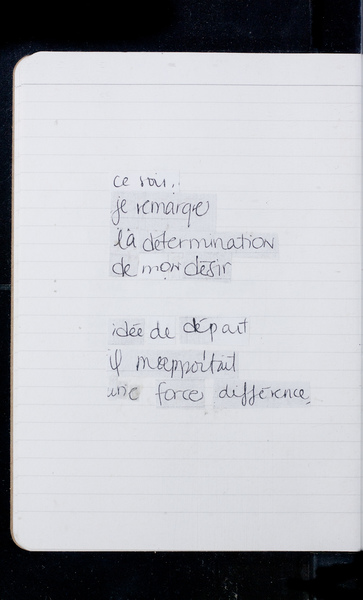 ce soir.
je remarque
la détermination
de mon désir
idée de départ
il m'apportait
une force différence.